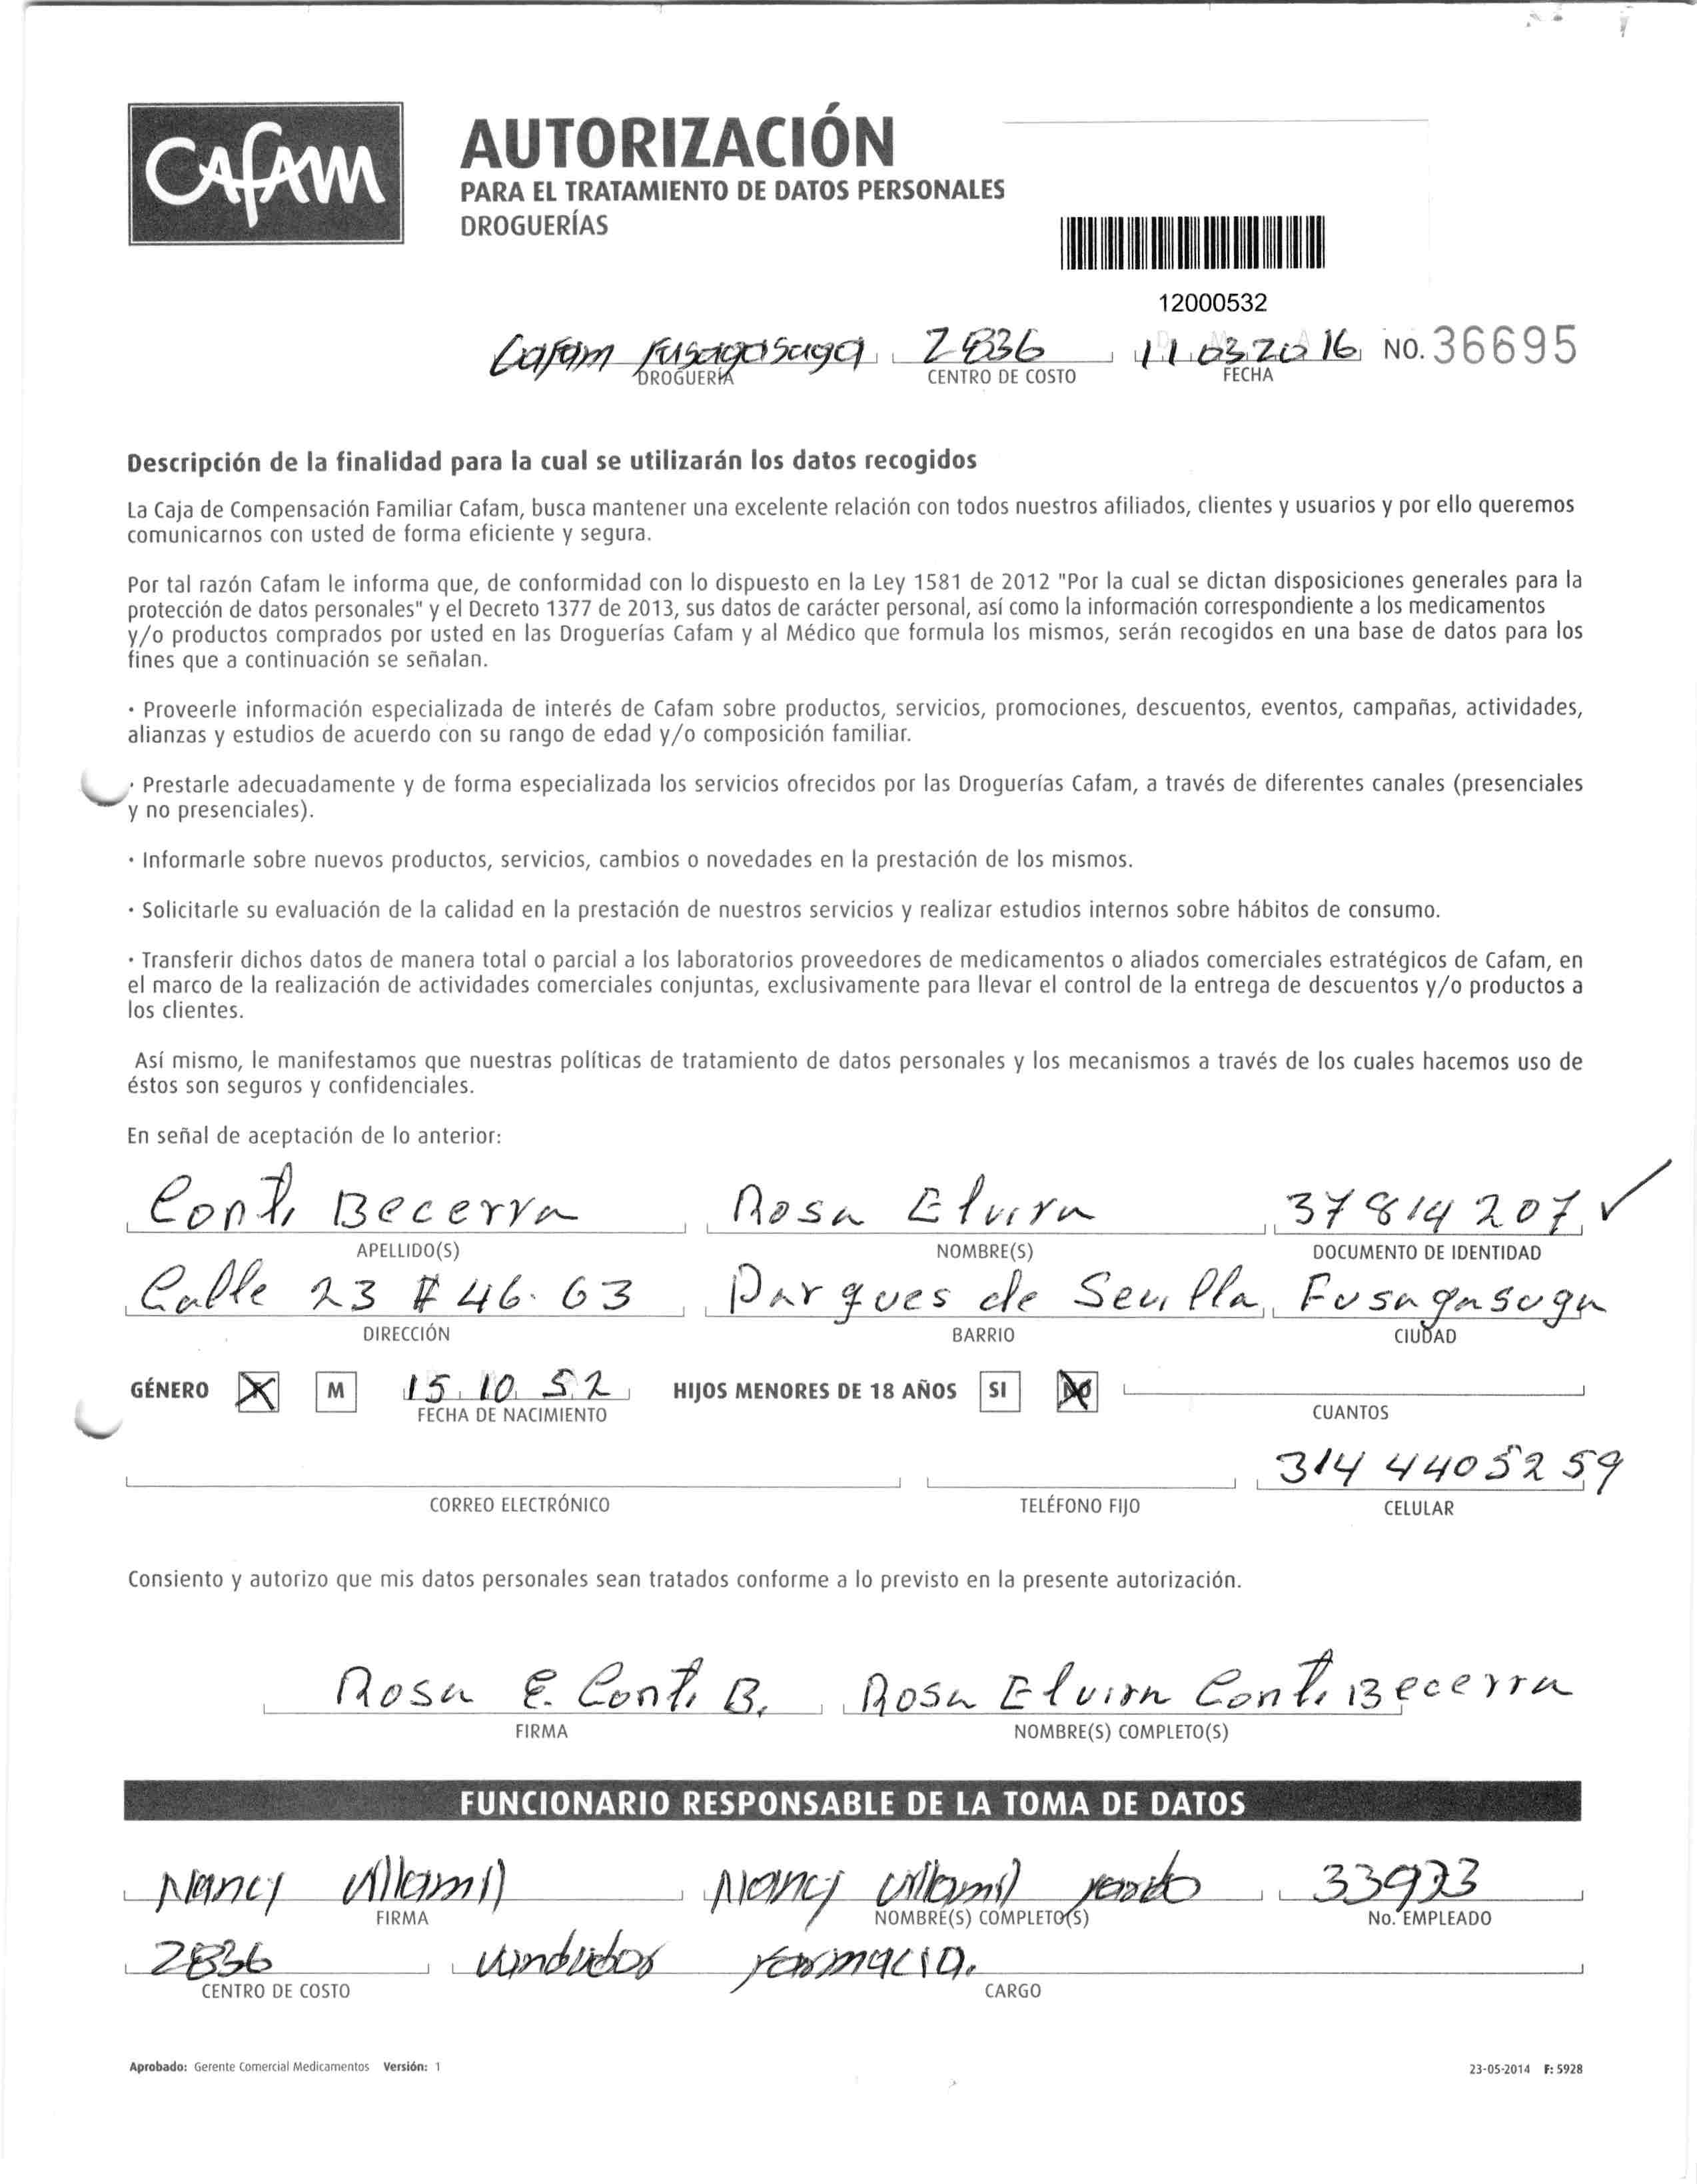 Cafam
AUTORIZACIÓN
PARA EL TRATAMIENTO DE DATOS PERSONALES
DROGUERÍAS
12000532
Cafam Fusagasuga 2836 11 03 2016 NO. 36695
DROGUERÍA CENTRO DE COSTO FECHA
Descripción de la finalidad para la cual se utilizarán los datos recogidos
La Caja de Compensación Familiar Cafam, busca mantener una excelente relación con todos nuestros afiliados, clientes y usuarios y por ello queremos
comunicarnos con usted de forma eficiente y segura.
Por tal razón Cafam le informa que, de conformidad con lo dispuesto en la Ley 1581 de 2012 "Por la cual se dictan disposiciones generales para la
protección de datos personales" y el Decreto 1377 de 2013, sus datos de carácter personal, así como la información correspondiente a los medicamentos
y/o productos comprados por usted en las Droguerías Cafam y al Médico que formula los mismos, serán recogidos en una base de datos para los
fines que a continuación se señalan.
· Proveerle información especializada de interés de Cafam sobre productos, servicios, promociones, descuentos, eventos, campañas, actividades,
alianzas y estudios de acuerdo con su rango de edad y/o composición familiar.
· Prestarle adecuadamente y de forma especializada los servicios ofrecidos por las Droguerías Cafam, a través de diferentes canales (presenciales
y no presenciales).
· Informarle sobre nuevos productos, servicios, cambios o novedades en la prestación de los mismos.
· Solicitarle su evaluación de la calidad en la prestación de nuestros servicios y realizar estudios internos sobre hábitos de consumo.
· Transferir dichos datos de manera total o parcial a los laboratorios proveedores de medicamentos o aliados comerciales estratégicos de Cafam, en
el marco de la realización de actividades comerciales conjuntas, exclusivamente para llevar el control de la entrega de descuentos y/o productos a
los clientes.
Así mismo, le manifestamos que nuestras políticas de tratamiento de datos personales y los mecanismos a través de los cuales hacemos uso de
éstos son seguros y confidenciales.
En señal de aceptación de lo anterior:
Conti Becerra Rosa Elvira 37814207
APELLIDO(S) NOMBRE(S) DOCUMENTO DE IDENTIDAD
Calle 23 # 46-63 Parques de Sevilla Fusagasuga
DIRECCIÓN BARRIO CIUDAD
GÉNERO F M 15 10 52 HIJOS MENORES DE 18 AÑOS SI NO
FECHA DE NACIMIENTO CUANTOS
314 4405259
CORREO ELECTRÓNICO TELÉFONO FIJO CELULAR
Consiento y autorizo que mis datos personales sean tratados conforme a lo previsto en la presente autorización.
Rosa E. Conti B. Rosa Elvira Conti Becerra
FIRMA NOMBRE(S) COMPLETO(S)
FUNCIONARIO RESPONSABLE DE LA TOMA DE DATOS
Nancy Villamil Nancy Villamil 33933
FIRMA NOMBRE(S) COMPLETO(S) No. EMPLEADO
2836 farmacia.
CENTRO DE COSTO CARGO
Aprobado: Gerente Comercial Medicamentos Versión: 1 23-05-2014 F: 5928